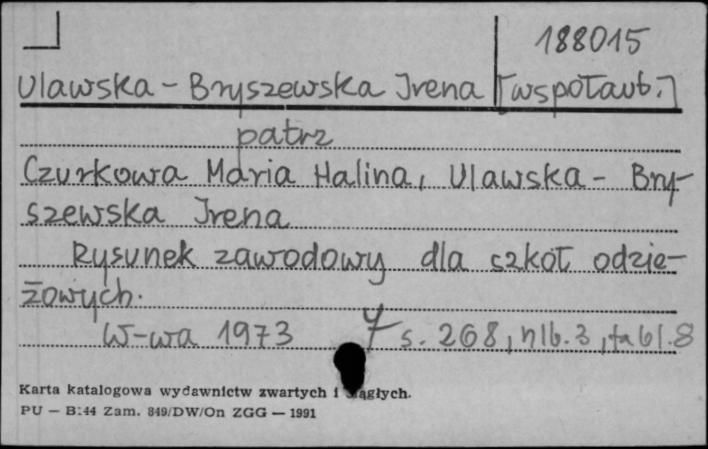 188015
Ulawska - Bryszewska Irena [współaut.]
patrz
Czurkowa Maria Halina, Ulawska - Bry-
szewska Irena
Rysunek zawodowy dla szkół odzie-
żowych.
W-wa 1973 s. 268, nlb. 3, tabl. 8
Karta katalogowa wydawnictw zwartych i ciągłych.
PU — B:44 Zam. 849/DW/On ZGG — 1991